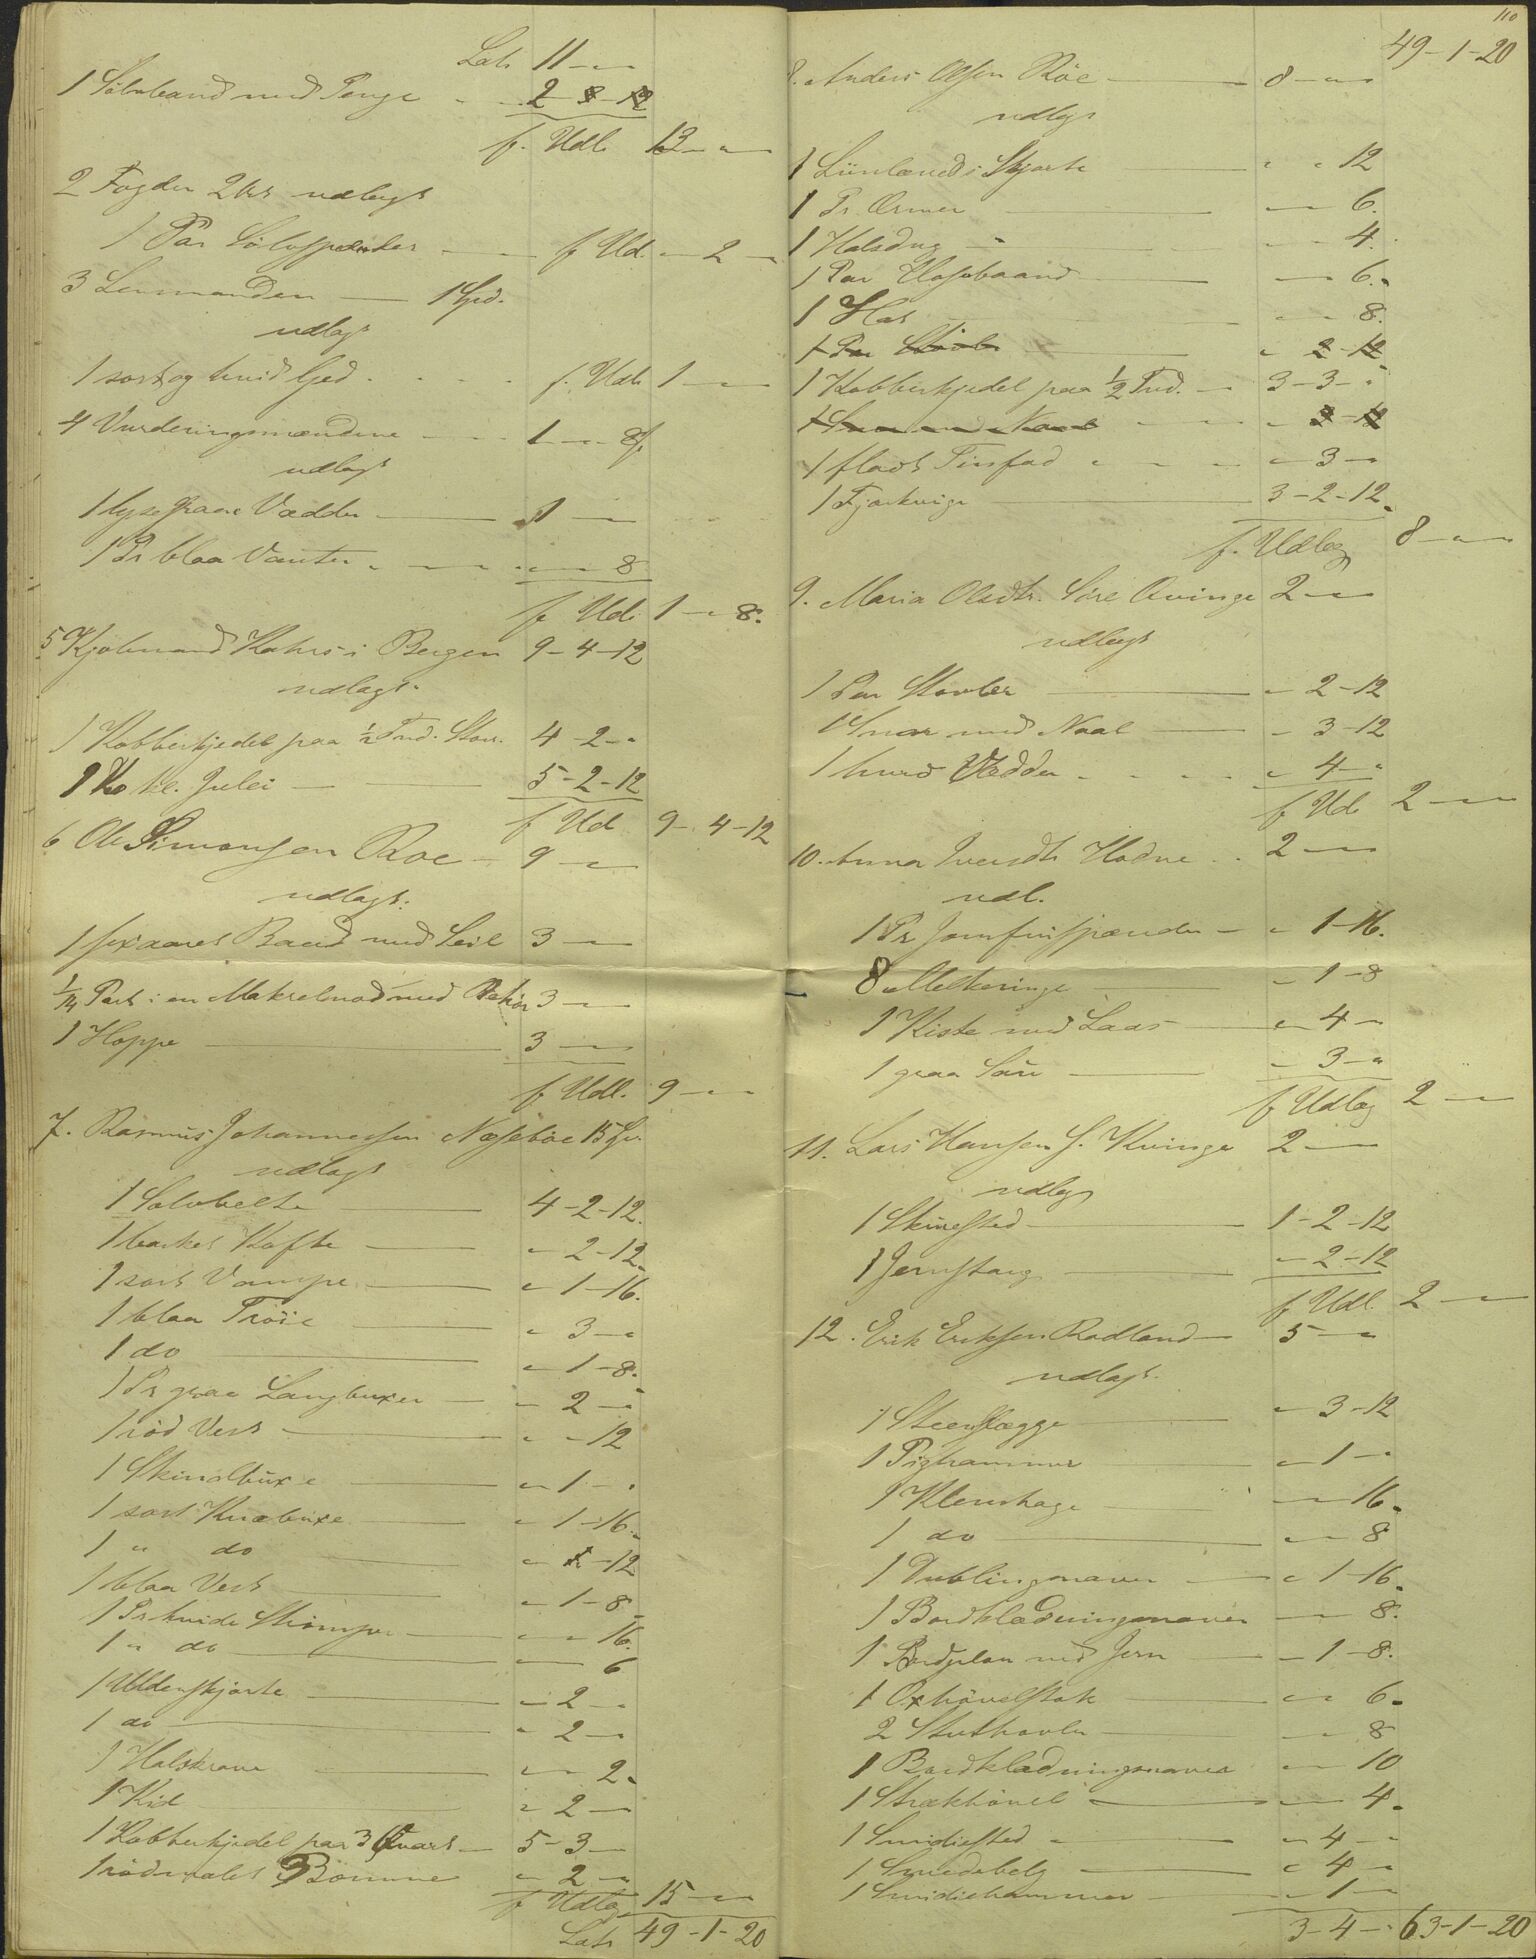 Lats 11 - "
1 Sølvbaand med Penge 2
f. Udl. 13 - "
2 Fogden 2 udlagt
1 Par Sølvspender f Ud. " 2 "
3 Lensmanden 1 Spd.
udlagt
1 sort og hvid Gjed f. Udl. 1 - "
4 Vurderingsmændene 1 - " 8
udlagt
1 lysegraae Vædder 1 - "
1 Pr blaa Vanter " - " 8
f Udl. 1 - " 8.
5 Kjøbmand Kahrs i Bergen 9 - 4 - 12
udlagt.
1 Kobberkjedel paa ½ Tnd. Stor. 4 - 2 - "
1 Ko kl. Julei 5 - 2 - 12
f Ud. 9 - 4 - 12
6 Ole Simonsen Röe 9 - "
udlagt:
1 sexaaret Baad med Seil 3 - "
1/14 Part i en Makrelnod med Behør 3 - "
1 Hoppe 3 - "
f. Udl. 9 - "
7. Rasmus Johannessen Næsebøe 15 Sp.
udlagt
1 Sølvbelte 4 - 2 - 12.
1 Kofte " 2 - 12.
1 sort Vampe " 1 - 16.
1 blaa Trøie " 3 - "
1 do " 1 - 8.
1 Pr graa Langbuxer " 2 - "
1 rød Vest " - 12
1 Skindbuxe " 1 - "
1 sort Knæbuxe " 1 - 16.
1 " do " - 12
1 blaa Vest " 1 - 8
1 Pr hvide Strömper " " 16.
1 " do " 6
1 Uldenskjorte " 2 - "
1 do " 2 - "
1 Halskrave " 2.
1 Kid " 2 - "
1 Kobberkjedel paa 3 Qvart 5 - 3 -
1 rødmalet Bömme " 2 - "
f Udlæg 15 - "
Lats 49 - 1 - 20
110
49 - 1 - 20
8. Anders Olsen Röe 8 - "
udlagt
1 Linlærreds Skjorte " " 12
1 Pr. Ærmer " 6.
1 Halsdug " 4.
1 Par Hosebaand " 6.
1 Hat " " 8.
1 Par Støvler " 2 - 12
1 Kobberkjedel paa ½ Tnd. 3 - 3 - "
1 Naal
1 fladt Tinfad " 3 - "
1 Fjorkvige 3 - 2 - 12.
f. Udlæg 8 - "
9. Maria Olsdtr. Søre Qvinge 2 - "
udlagt
1 Par Støvler " 2 - 12
1 Snor med Naal " 3 - 12
1 hvid Vædder " 4 - "
f Ud. 2 - "
10. Anna Iversdtr Hodne 2 - "
udl.
1 Pr Jomfruspænder " 1 - 16.
8 Melkeringe " 1 - 8
1 Kiste med Laas " 4 - "
1 graa Sau " 3 - "
f Udlæg 2 - "
11. Lars Hansen S. Kvinge 2 - "
udlagt
1 1 - 2 - 12
1 Jernstang " 2 - 12
f Udl. 2 - "
12. Erik Eriksen Radland 5 - "
udlagt.
1 Steenslægge " 3 - 12
1 Pighammer " 1 - "
1 " 16.
1 do " 8
1 Dublingsnaver " 1 - 16.
1 Bordklædningsnaver " 8.
1 med Jern " 1 - 8.
1 " " 6.
2 " 8
1 Bordklædningsnaver " 10
1 Strækhövel " 4.
1 Smidiested " 4 - "
1 Smedebelg " 4 - "
1 Smidiehammer " 1 - "
3 - 4 - " 63 - 1 - 20